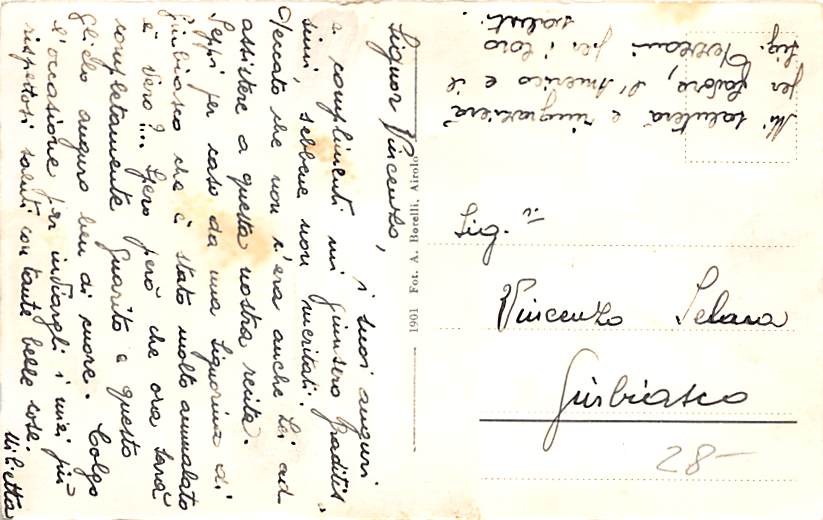 Signor Vincenzo,
i suoi auguri
e complimenti mi giunsero graditis-
simi, sebbene non meritati.
Peccato che non c'era anche Lei ad
assistere a questa nostra recita.
Seppi per caso da una Signorina di
Giubiasco che è stato molto ammalato
è vero?... Spero però che ora sarà
completamente guarito e questo
glielo auguro ben di cuore. Colgo
l'occasione per inviargli i miei più
rispettosi saluti con tante belle cose.
Milietta
1901 Fot. A. Borelli, Airolo
Mi saluterà e ringrazierà
per favore, l'Americo e il
Sig. Terrani per i loro
saluti.
Sig.
Vincenzo Selara
Giubiasco
28-